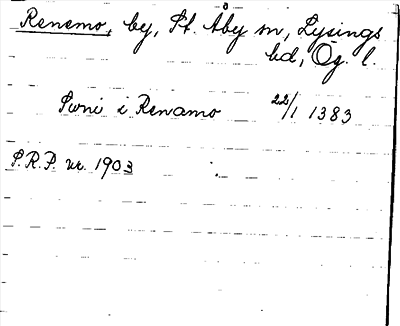 Renamo, by, St. Åby sn, Lysings
hd, Ög. l.
Swni i Renamo 22/1 1383
S.R.P. nr. 1903